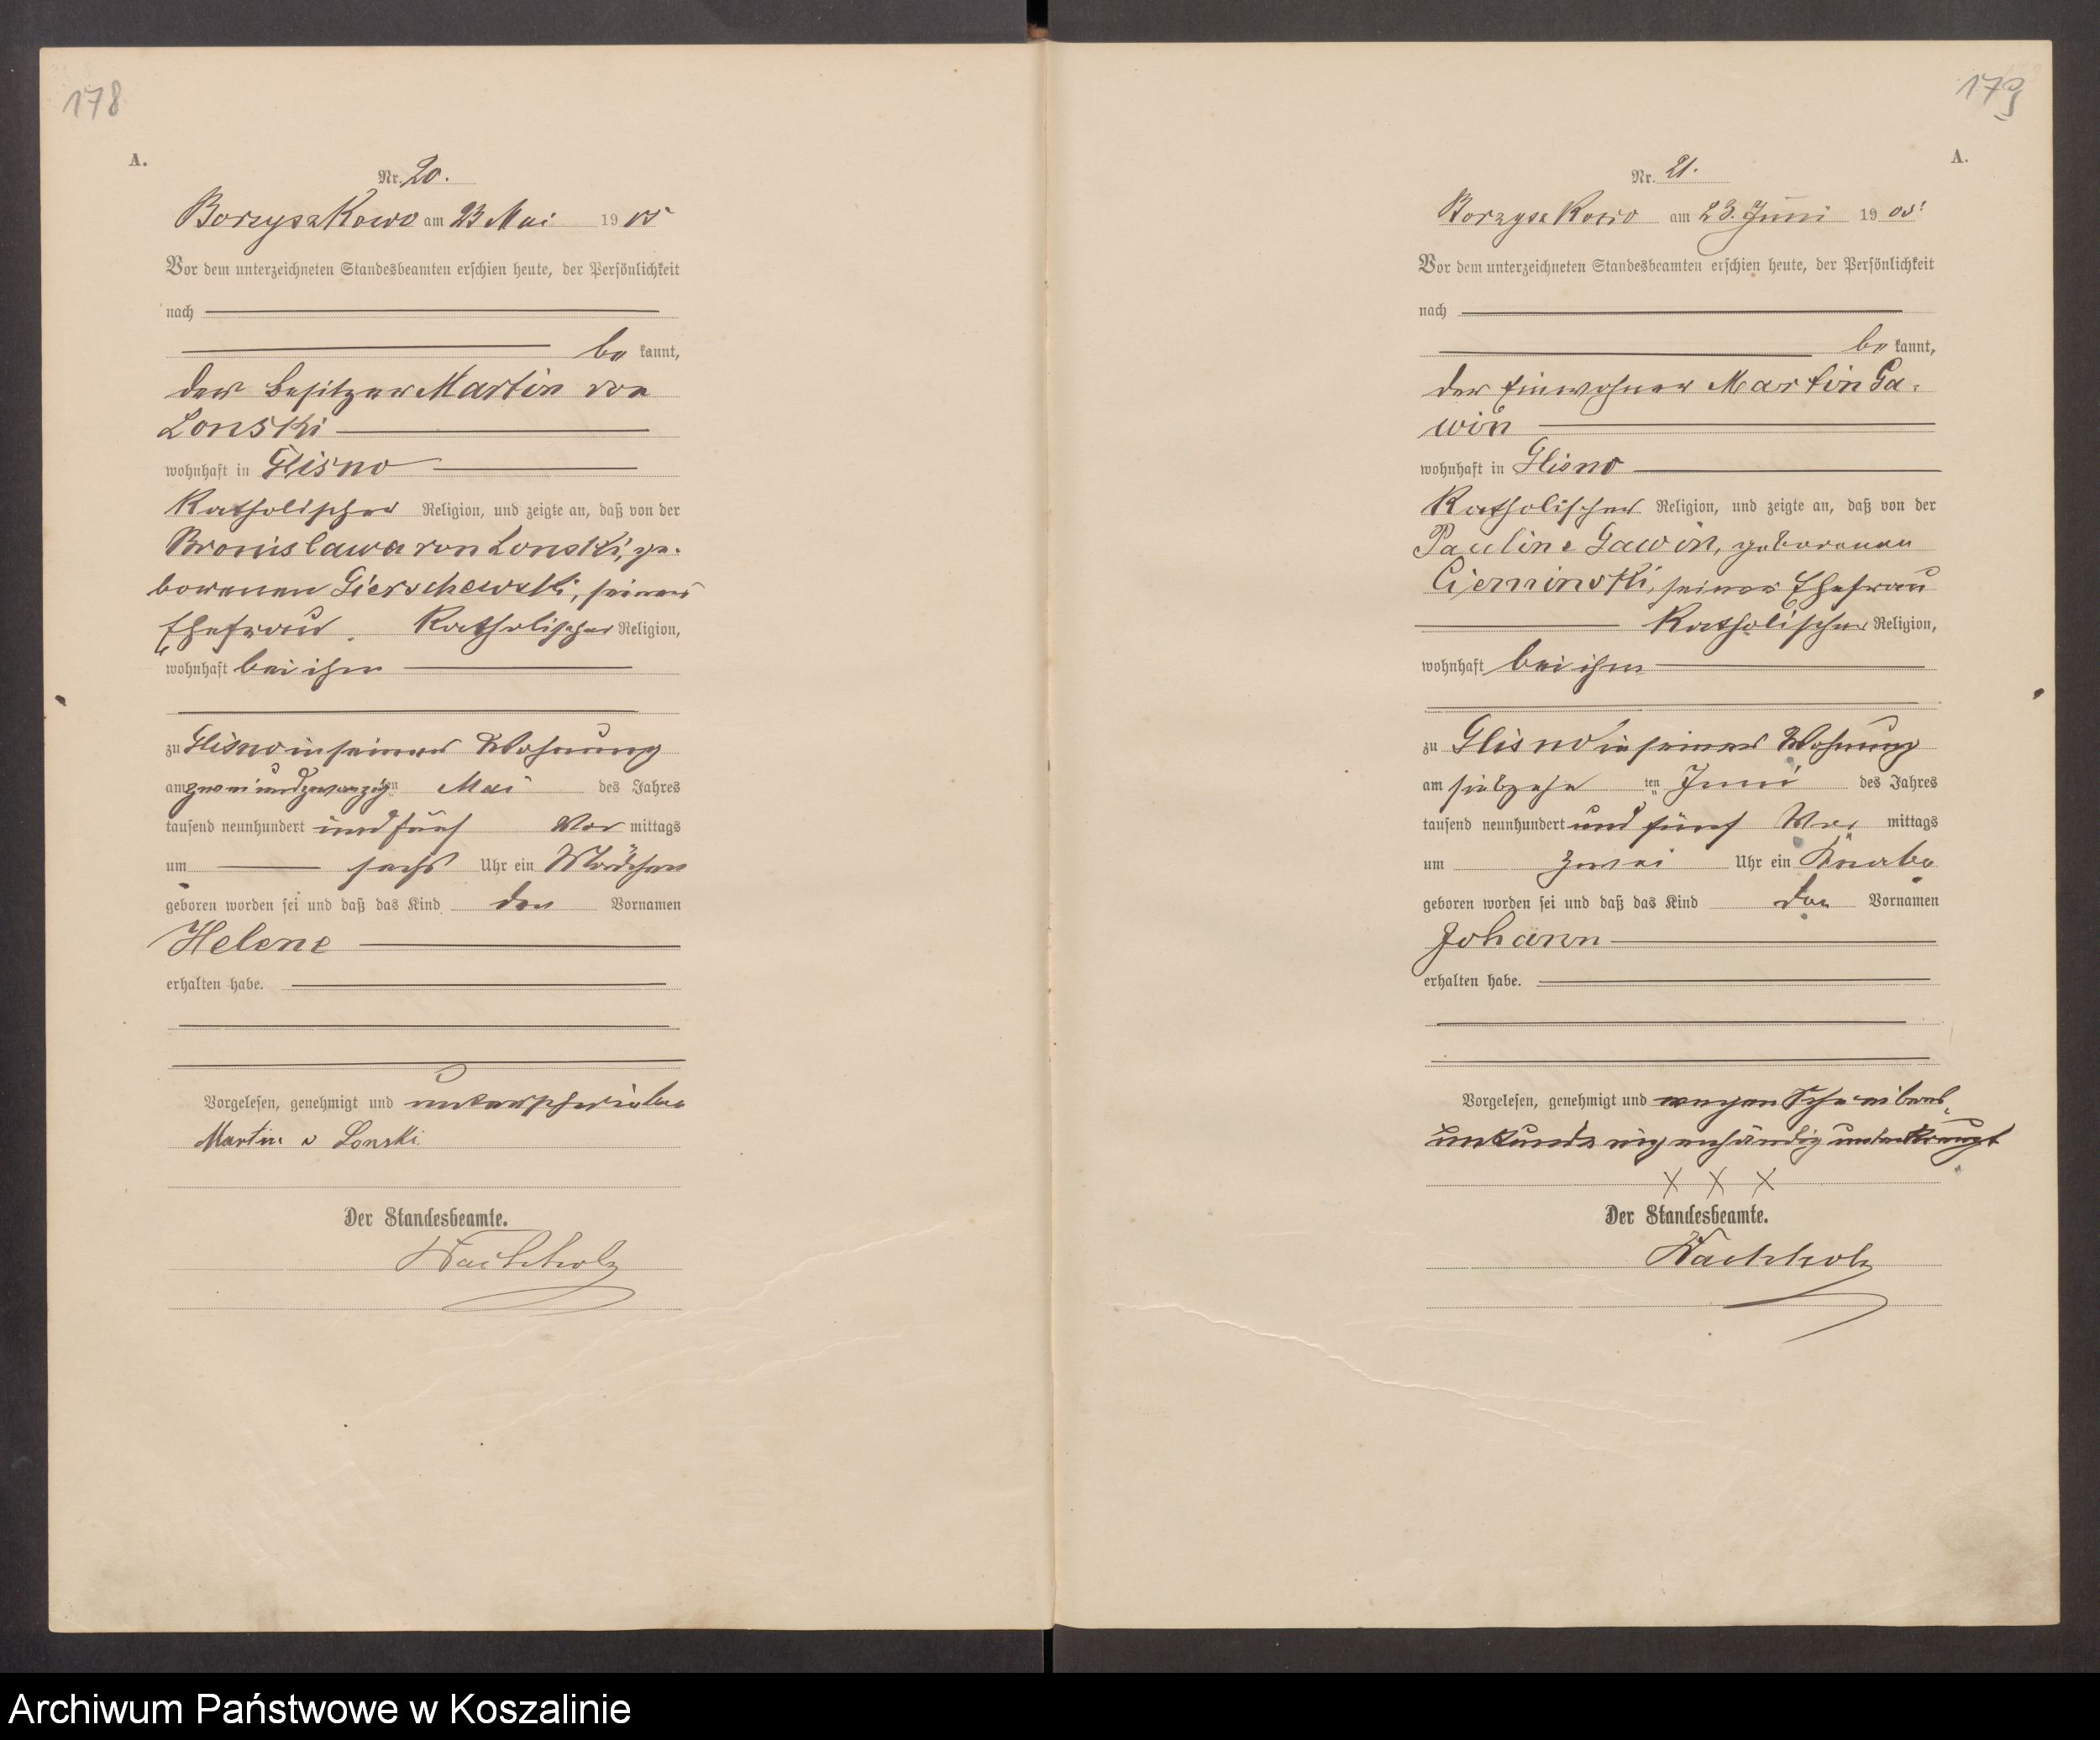 178
A.
Nr. 20.
Borzyszkowo am 23 Mai 1905
Vor dem unterzeichneten Standesbeamten erschien heute, der Persönlichkeit
nach
be kannt,
der Besitzer Martin von
Lonski
wohnhaft in Glisno
Katholischer Religion, und zeigte an, daß von der
Bronislawa von Lonski, ge-
borenen Gierschewski, seiner
Ehefrau. Katholischer Religion,
wohnhaft bei ihm
zu Glisno in seiner Wohnung
am zwei und zwanzigten Mai des Jahres
tausend neunhundert und fünf Vor mittags
um sechs Uhr ein Mädchen
geboren worden sei und daß das Kind den Vornamen
Helene
erhalten habe.
Vorgelesen, genehmigt und unterschrieben
Martin v Lonski
Der Standesbeamte.
Wachholz
179
A.
Nr. 21.
Borzyszkowo am 23. Juni 1905.
Vor dem unterzeichneten Standesbeamten erschien heute, der Persönlichkeit
nach
be kannt,
der Einwohner Martin Ga-
win
wohnhaft in Glisno
Katholischer Religion, und zeigte an, daß von der
Pauline Gawin, geborenen
Cieminski, seiner Ehefrau
Katholischer Religion,
wohnhaft bei ihm
zu Glisno in seiner Wohnung
am siebzehn ten Juni des Jahres
tausend neunhundert und fünf Vor mittags
um zwei Uhr ein Knabe
geboren worden sei und daß das Kind den Vornamen
Johann
erhalten habe.
Vorgelesen, genehmigt und wegen Schreibens-
unkunde eigenhändig unterkreuzt
X X X
Der Standesbeamte.
Wachholz
Archiwum Państwowe w Koszalinie